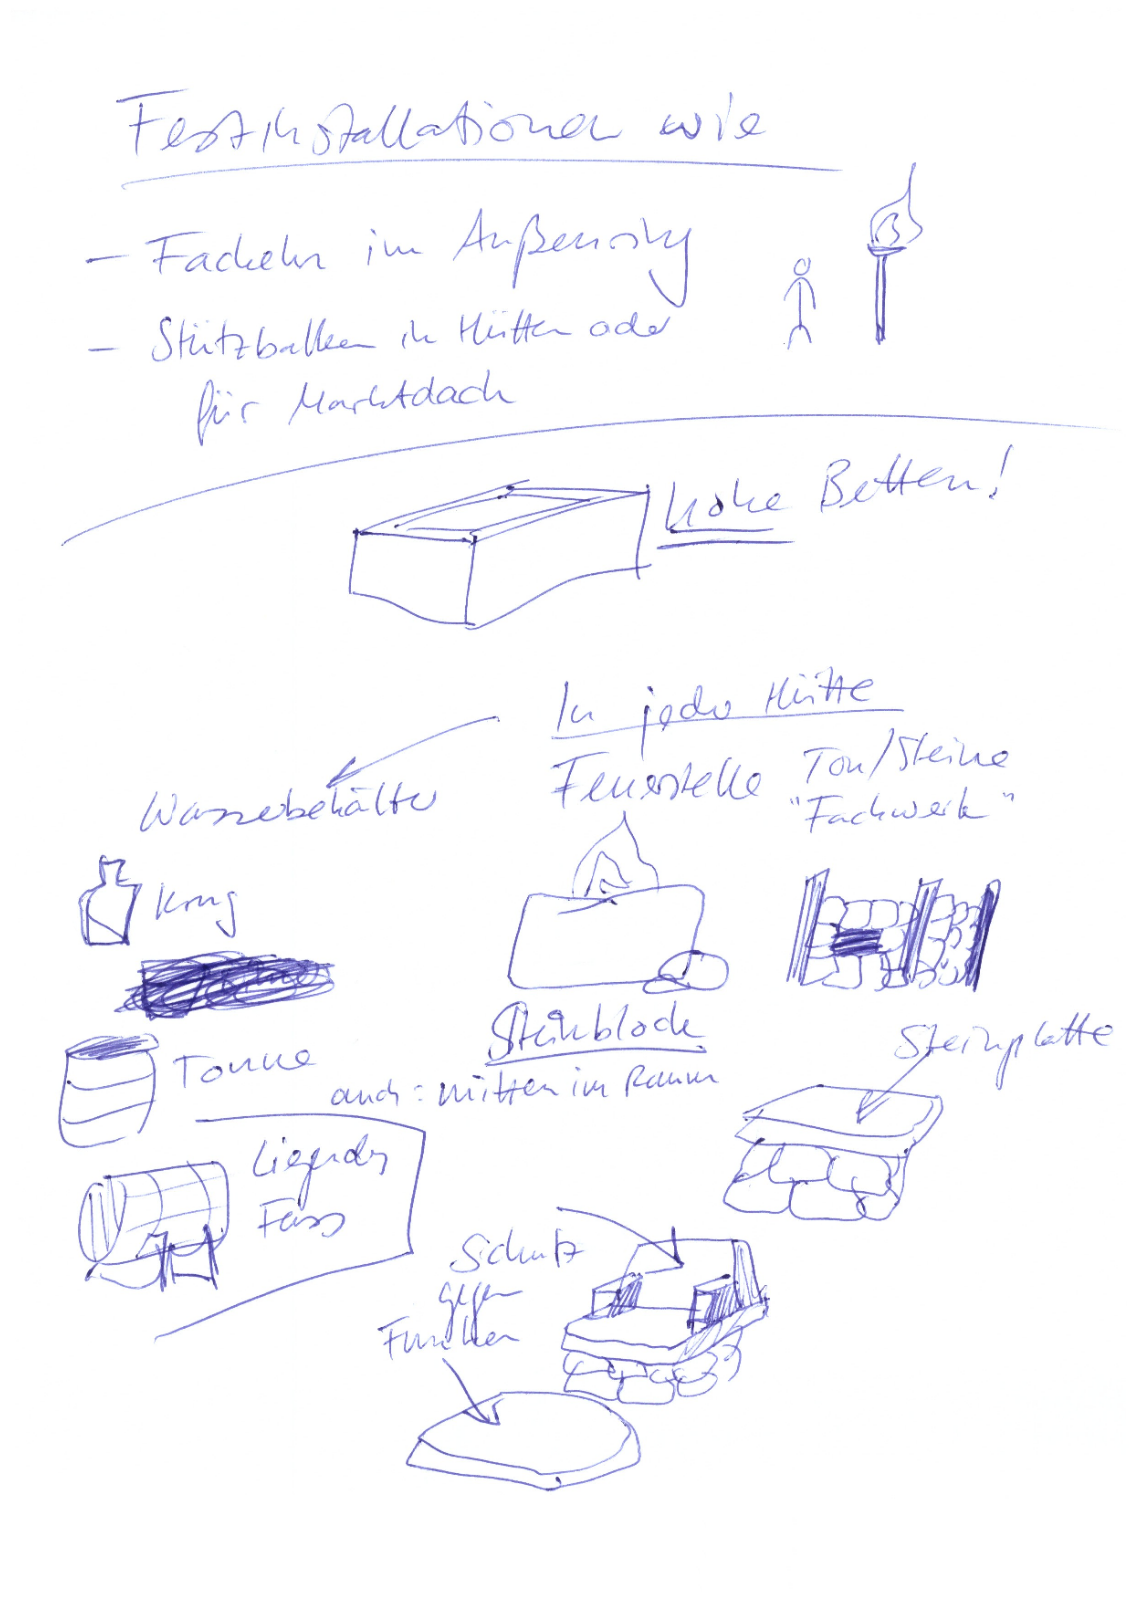 Festinstallationen wie
– Fackeln im Außenring
– Stützbalken in Hütten oder
für Marktdach
hohe Betten!
In jeder Hütte
Feuerstelle
Ton/Steine
"Fachwerk"
Wasserbehälter
Krug
Tonne
Liegendes
Fass
Steinblock
auch: mitten im Raum
Steinplatte
Schutz
gegen
Funken